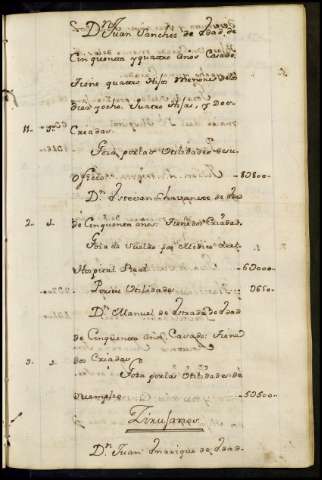 Dn. Juan Sanches de edad, de
Cinquenta y quatro años Casado,
Tiene quatro Hijos Menores de
diez y ocho, quatro Hijas, y dos
11. Criadas
Goza por las Utilidades de su
Oficio 80800.
Dn. Estevan de edad
2. 1. de Cinquenta años. Tiene dos Criadas.
Goza de Sueldo por Medico del
Hospital Real 60000.
Por sus Utilidades 0650.
Dn. Manuel de Estrada de edad
de Cinquenta años, Casado: Tiene
3. 1. dos Criadas
Goza por las Utilidades de
su empleo 50500.
Zirujanos
Dn. Juan Manrique de edad